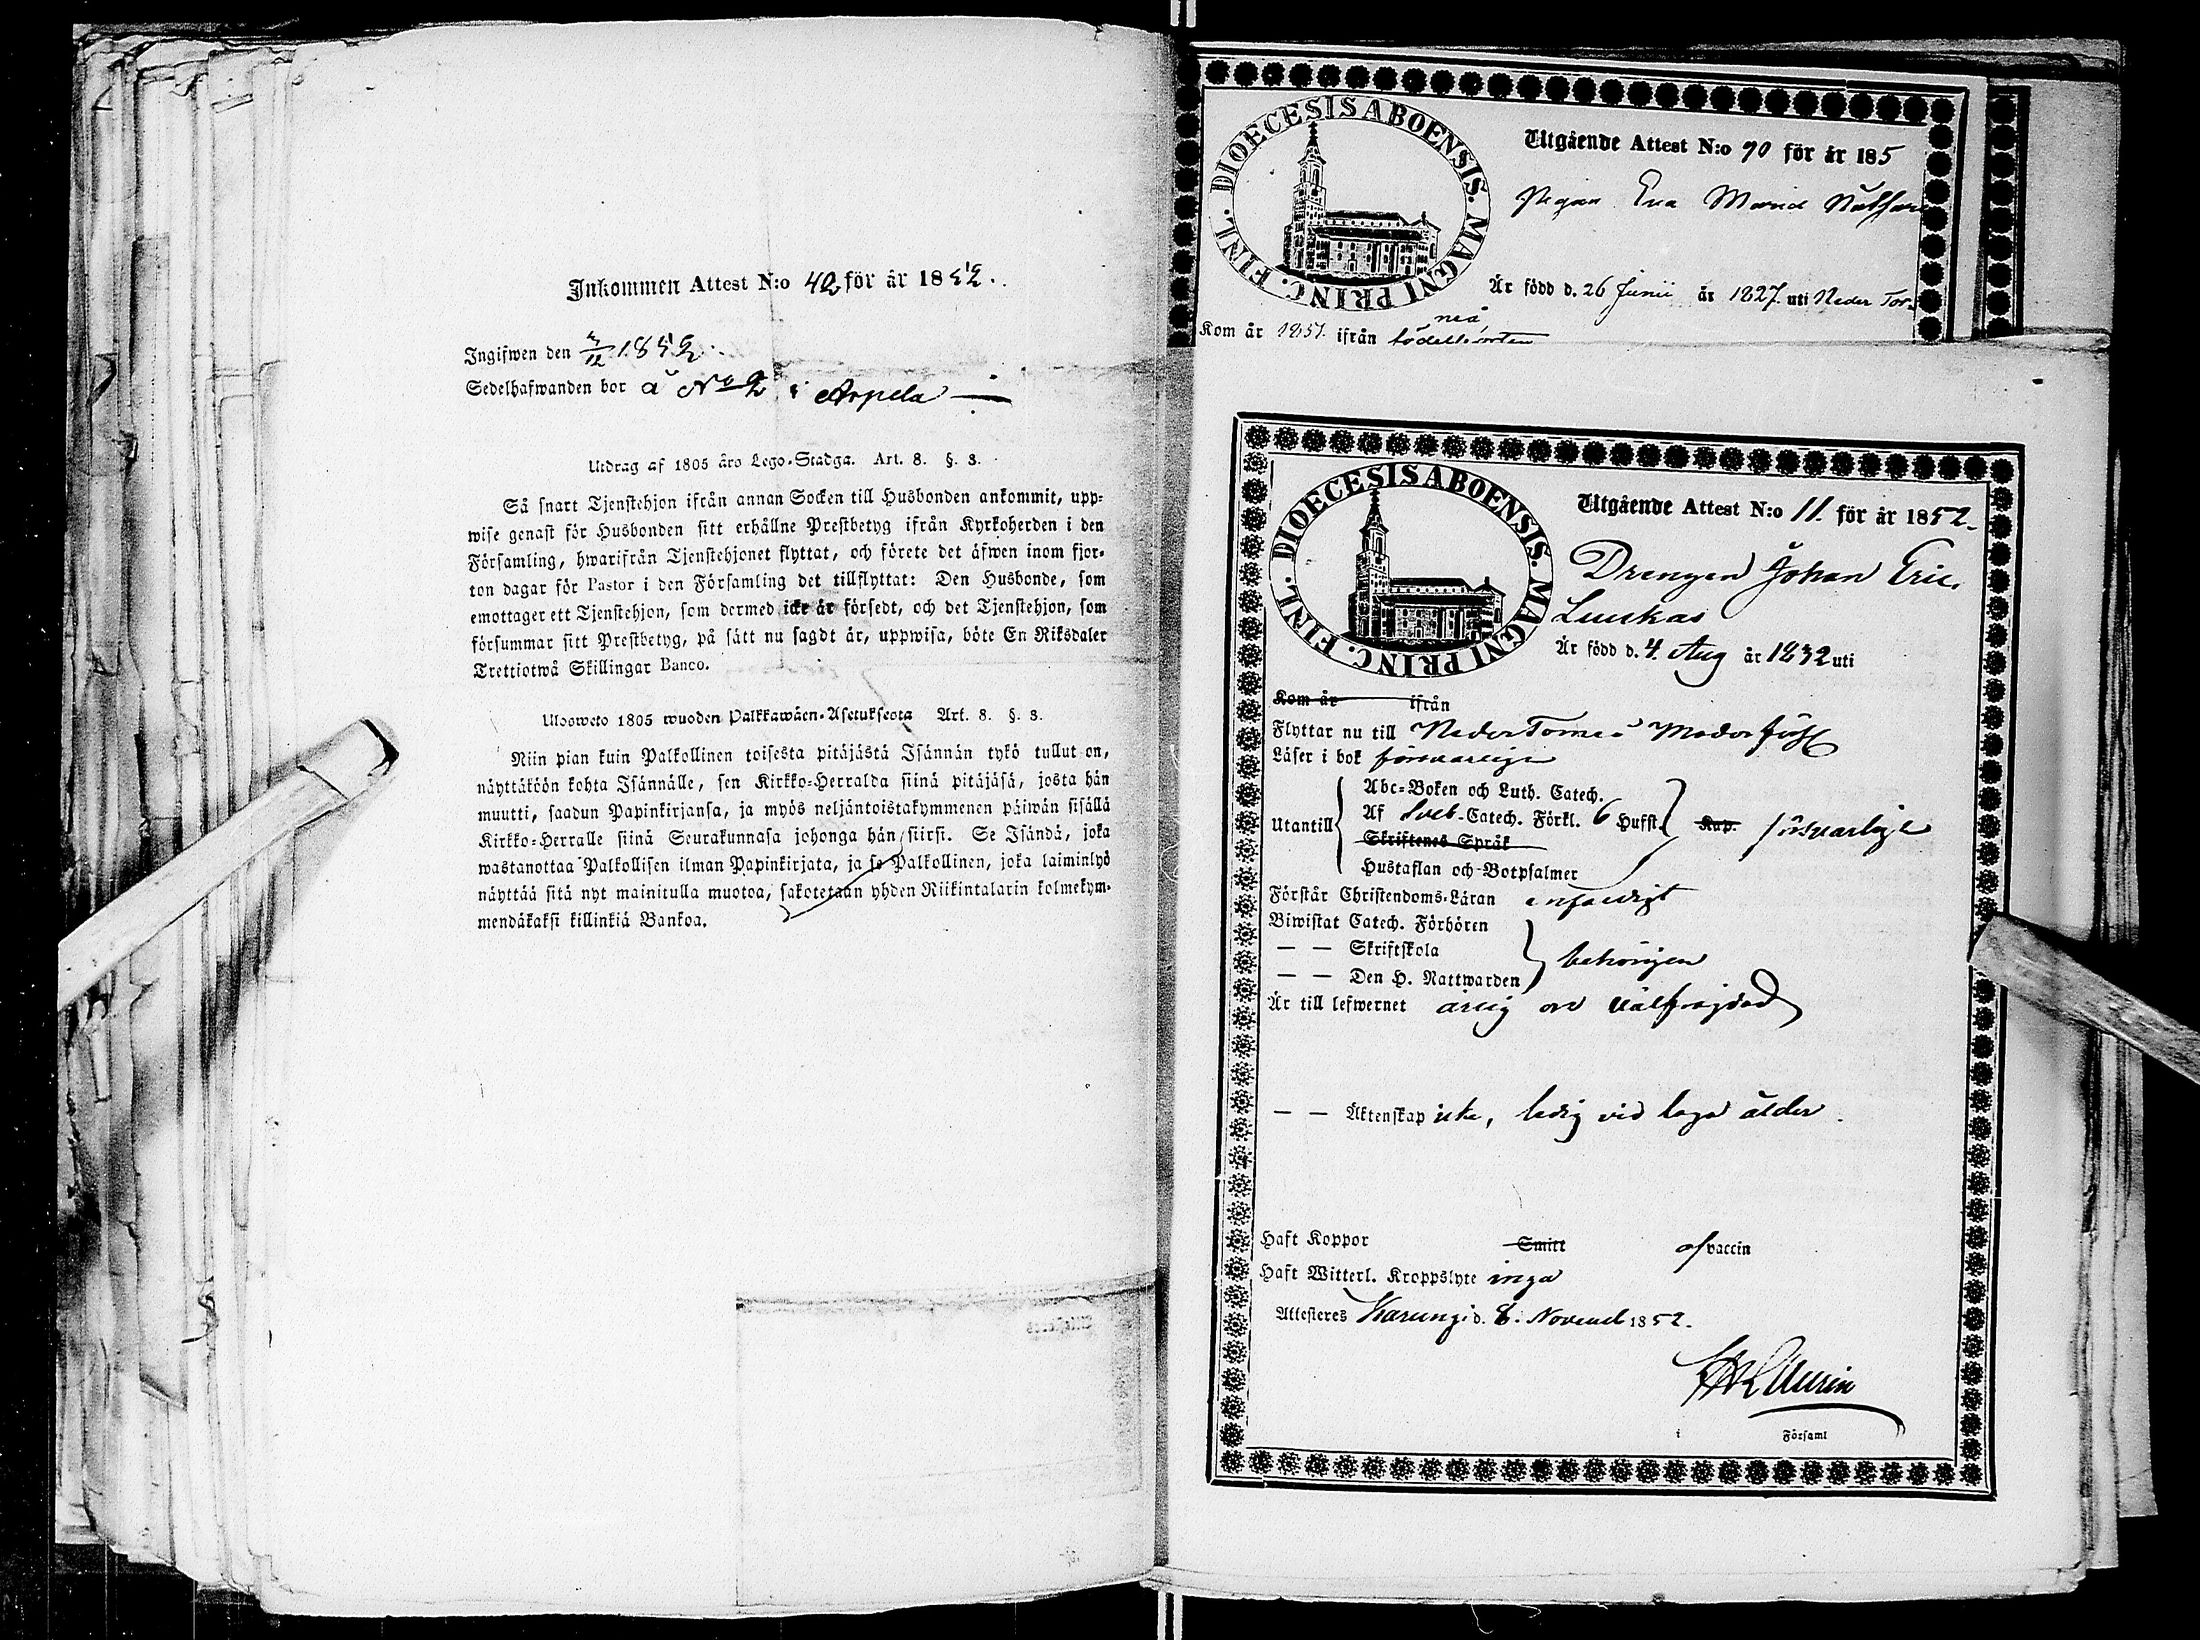 Inkommen Attest N:o 42 för år 1852.
Ingifwen den 3/12 1852.
Sedelhafwanden bor å No 2 i Arpela
Utdrag af 1805 års Lego-Stadga. Art. 8. §. 3.
Så snart Tjenstehjon ifrån annan Socken till Husbonden ankommit, upp-
wise genast för Husbonden sitt erhållne Prestbetyg ifrån Kyrkoherden i den
Församling, hwarifrån Tjenstehjonet flyttat, och förete det äfwen inom fjor-
ton dagar för Pastor i den Församling det tillflyttat: Den Husbonde, som
emottager ett Tjenstehjon, som dermed icke är försedt, och det Tjenstehjon, som
försummar sitt Prestbetyg, på sätt nu sagdt är, uppwisa, böte En Riksdaler
Trettiotwå Skillingar Banco.
Ulosweto 1805 wuoden Palkkawäen-Asetuksesta Art. 8. §. 3.
Niin pian kuin Palkollinen toisesta pitäjästä Isännän tykö tullut on,
näyttäköön kohta Isännälle, sen Kirkko-Herralda siinä pitäjäsä, josta hän
muutti, saadun Papinkirjansa, ja myös neljäntoistakymmenen päiwän sisällä
Kirkko-Herralle siinä Seurakunnasa johonga hän siirsi. Se Isändä, joka
wastanottaa Palkollisen ilman Papinkirjata, ja se Palkollinen, joka laiminlyö
näyttää sitä nyt mainitulla muotoa, sakotetaan yhden Riikintalarin kolmekym-
mendäkaksi killinkiä Bankoa.
DIOECESIS ABOENSIS. MAGNI PRINC. FINL.
Utgående Attest N:o 90 för år 185
Pigan Eva Maria
Är född d. 26 Junii år 1827 uti Neder Tor-
neå
Kom år 1851. ifrån födelseorten
DIOECESIS ABOENSIS. MAGNI PRINC. FINL.
Utgående Attest N:o 11. för år 1852.
Drengen Johan Eric
Luukas
Är född d. 4. Aug år 1832 uti
Kom år ifrån
Flyttar nu till Neder Torneå Moderförs
Läser i bok försvarligt
Abc-Boken och Luth. Catech.
Utantill Af Sveb. Catech. Förkl. 6 Hufst. Kap. försvarligt
Skriftenes Språk
Hustaflan och Botpsalmer
Förstår Christendoms-Läran enfaldigt
Biwistat Catech. Förhören
— — Skriftskola behörigen
— — Den H. Nattwarden
Är till lefwernet ärlig och välfrägdad
— — Äktenskap icke, ledig vid laga ålder.
Haft Koppor Smitt af vaccin
Haft Witterl. Kroppslyte inga
Attesteres Karungi d. 8. Novemb 1852.
i Församl